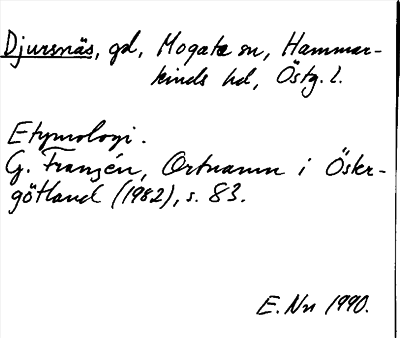 Djursnäs, gd, Mogata sn, Hammar-
kinds hd, Östg. l.
Etymologi.
G. Franzén, Ortnamn i Öster-
götland (1982), s. 83.
E. Nn 1990.